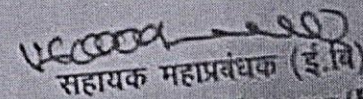 सहायक महाप्रबंधक (ई.वि)